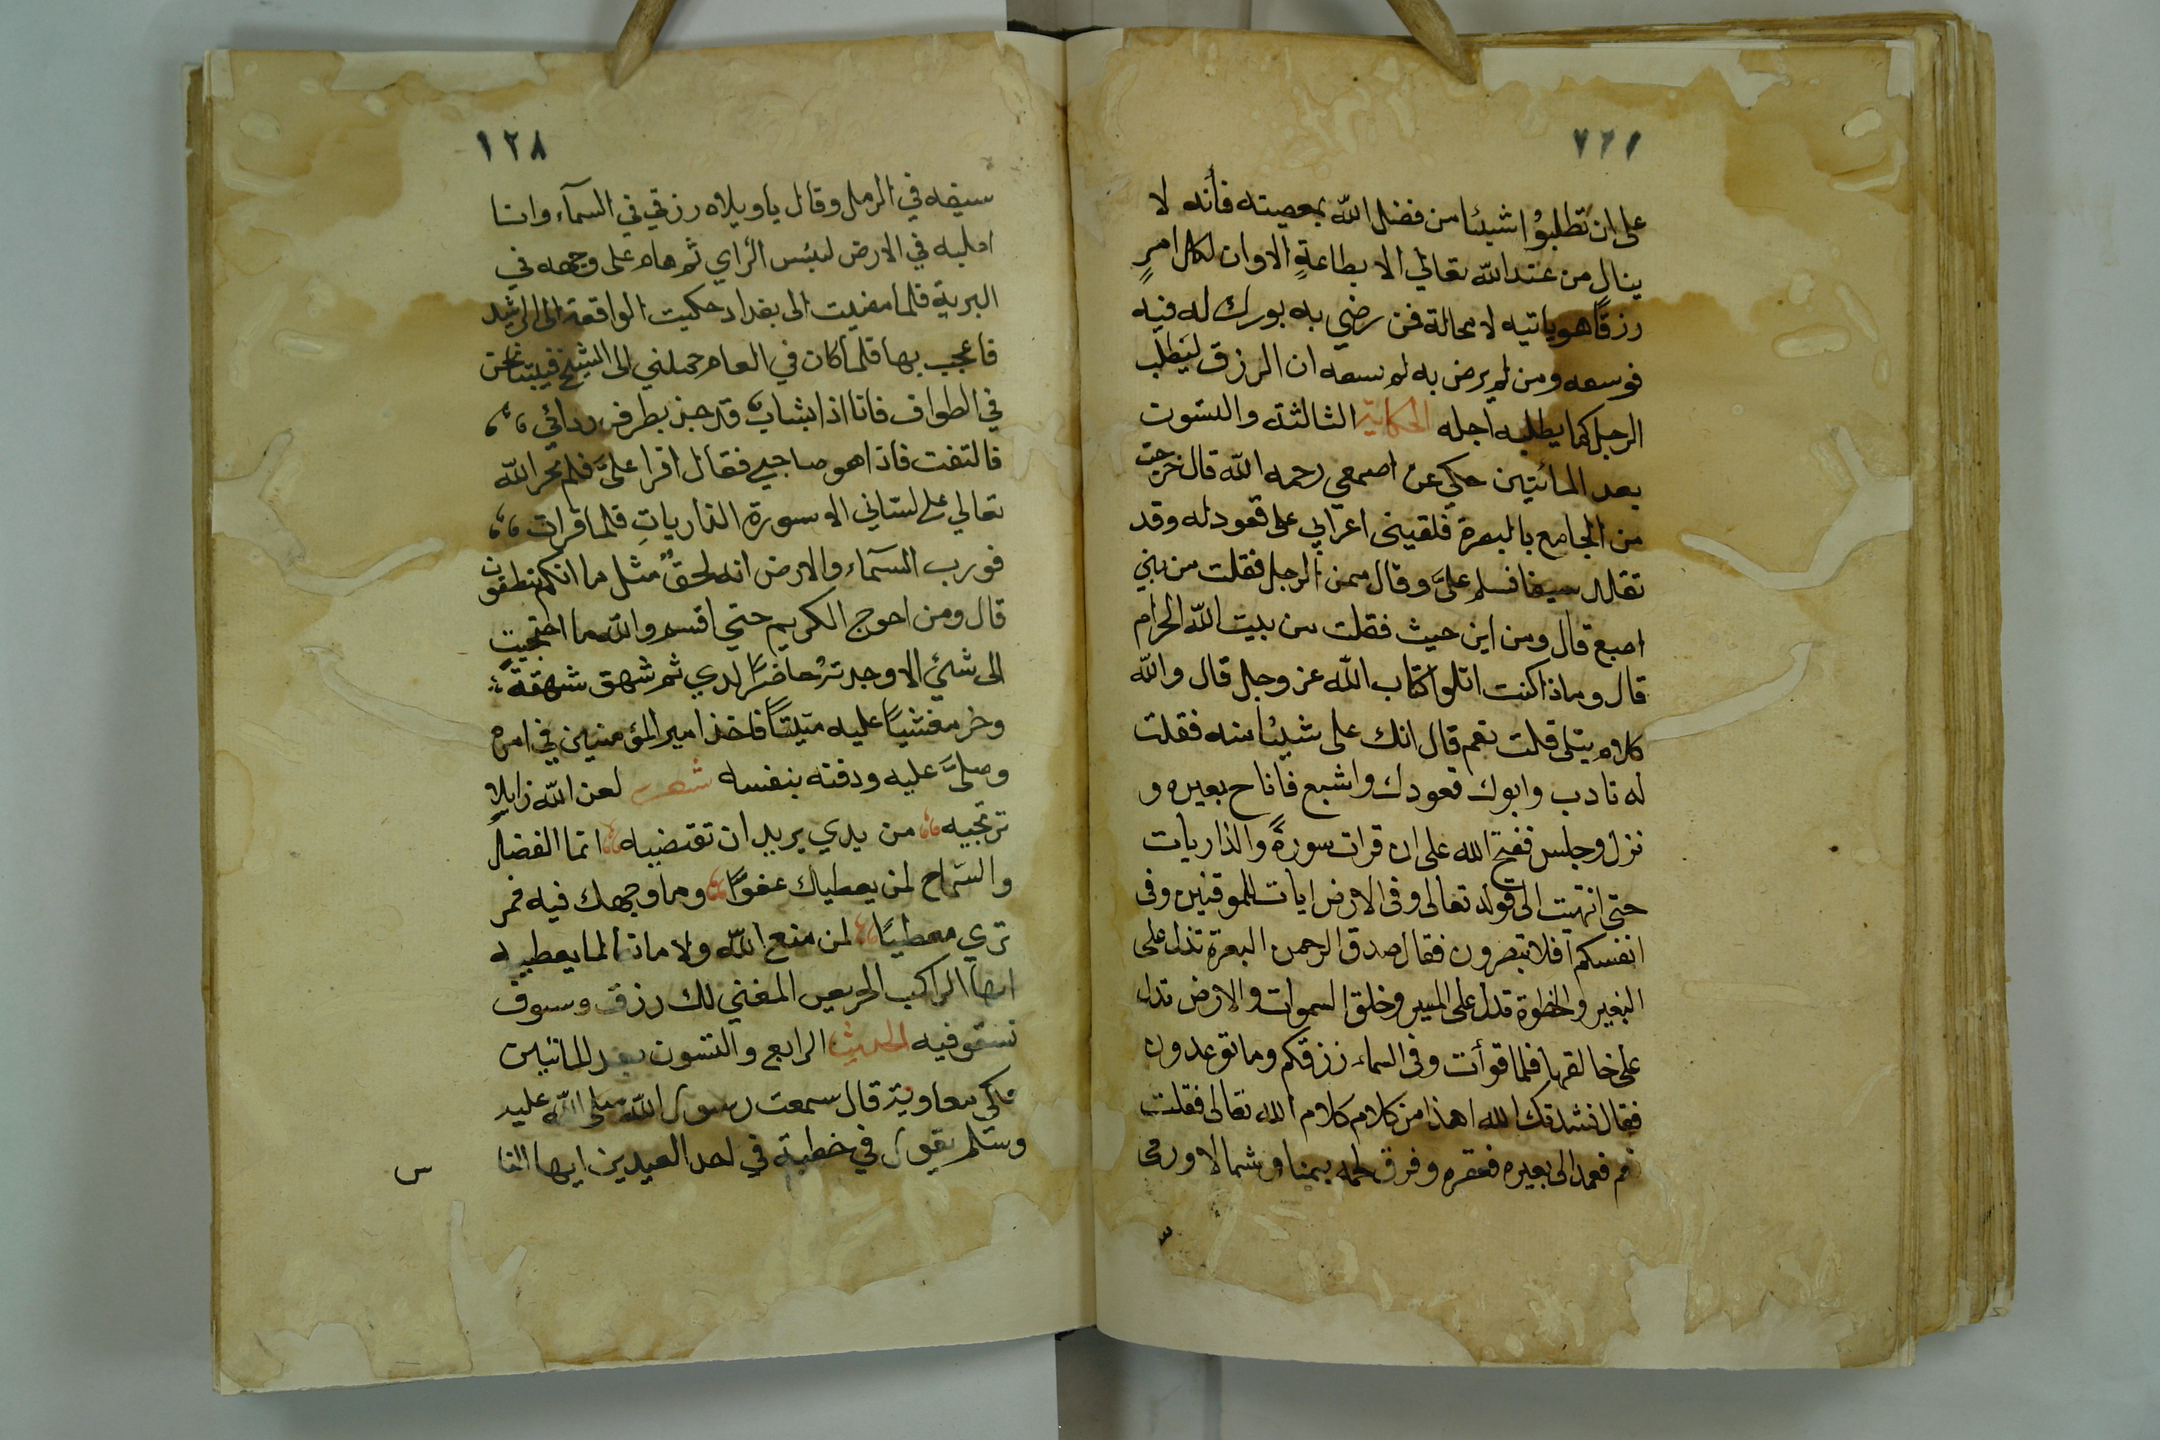 ١٢٧
على ان تطلبوا شيئا من فضل الله بمعصيته فأنه لا
ينال من عند الله تعالي الا بطاعةٍ الا وان لكل امرٍ
رزقًا هو ياتيه لا محالة فمن رضي به بورك له فيه
فوسعه ومن لم يرض به لم يسعه ان الرزق ليَطلب
الرجل كما يطلبه اجله الحكاية الثالثة والتسعون
بعد المائتين حكي عن اصمعي رحمه الله قال خرجت
من الجامع بالبصرة فلقيني اعرابي على قعود له وقد
تقلد سيفا فسلم عليَّ وقال ممن الرجل فقلت من بني
اصمع قال ومن اين حيث فقلت من بيت الله الحرام
قال وماذا كنت اتلوا كتاب الله عز وجل قال والله
كلام يتلى قلت نعم قال اتك على شيئا منه فقلت
له تادب وابوك قعودك واشبع فاناح بعيره و
نزل وجلس ففتح الله على ان قرات سورةً والذاريات
حتى انتهيت الى قوله تعالى وفى الارض ايات للموقنين وفى
انفسكم افلا تبصرون فقال صدق الرحمن البعرة تدل على
البعير والخطوة تدل على المسير وخلق السموات والارض تدل
على خالقها فلما قرأت وفى السماء رزقكم وما توعدون
فقال نشدتك الله اهذا من كلام كلام الله تعالى فقلت
نعم فعمد الى بعيره فعقره وفرق لحمه يمنا وشمالا ورمى
١٢٨
سيفه في الرمل وقال يا ويلاه رزقي في السمآء وانا
اطلبه في الارض لبئس الراي ثم هام على وجهه في
البرية فلما مضيت الى بغداد حكيت الواقعة الى الرشيد
فاعجب بها فلما كان في العام حملني الى الشيخ فبينا نحن
في الطواف فانا اذا بشاب قد جبذ بطرف ردائي
فالتفت فاذا هو صاحبي فقال اقرا عليَّ فلم يجر الله
تعالي على لساني الا سورة الذارياتِ فلما قرات
فورب السمآء والارض انه لحقٌ مثل ما انكم تنطقون
قال ومن احوج الكريم حتي اقسم والله ما احتجيت
الى شئ الا وجدته حاضرًا لدي ثم شهق شهقة
وخر مغشيًا عليه ميتًا فاخذ امير المؤمنين في امره
وصلىَّ عليه ودفنه بنفسه شعر لعن الله زايلا
ترتجيه من يدي يريد ان تقتضيه انما الفضل
والسّماح لمن يعطياك عفوًا وما وجهك فيه فمر
تري معطيًا لمن منع الله ولا مانعا لما يعطيه
ايها الراكب الحريص المغني لك رزق وسوف
تستوفيه الحديث الرابع والتسون بعد المائتين
حكي معاوية قال سمعت رسول الله صلى الله عليه
وسلم يقول في خطبة في احد العيدين ايها النا
س